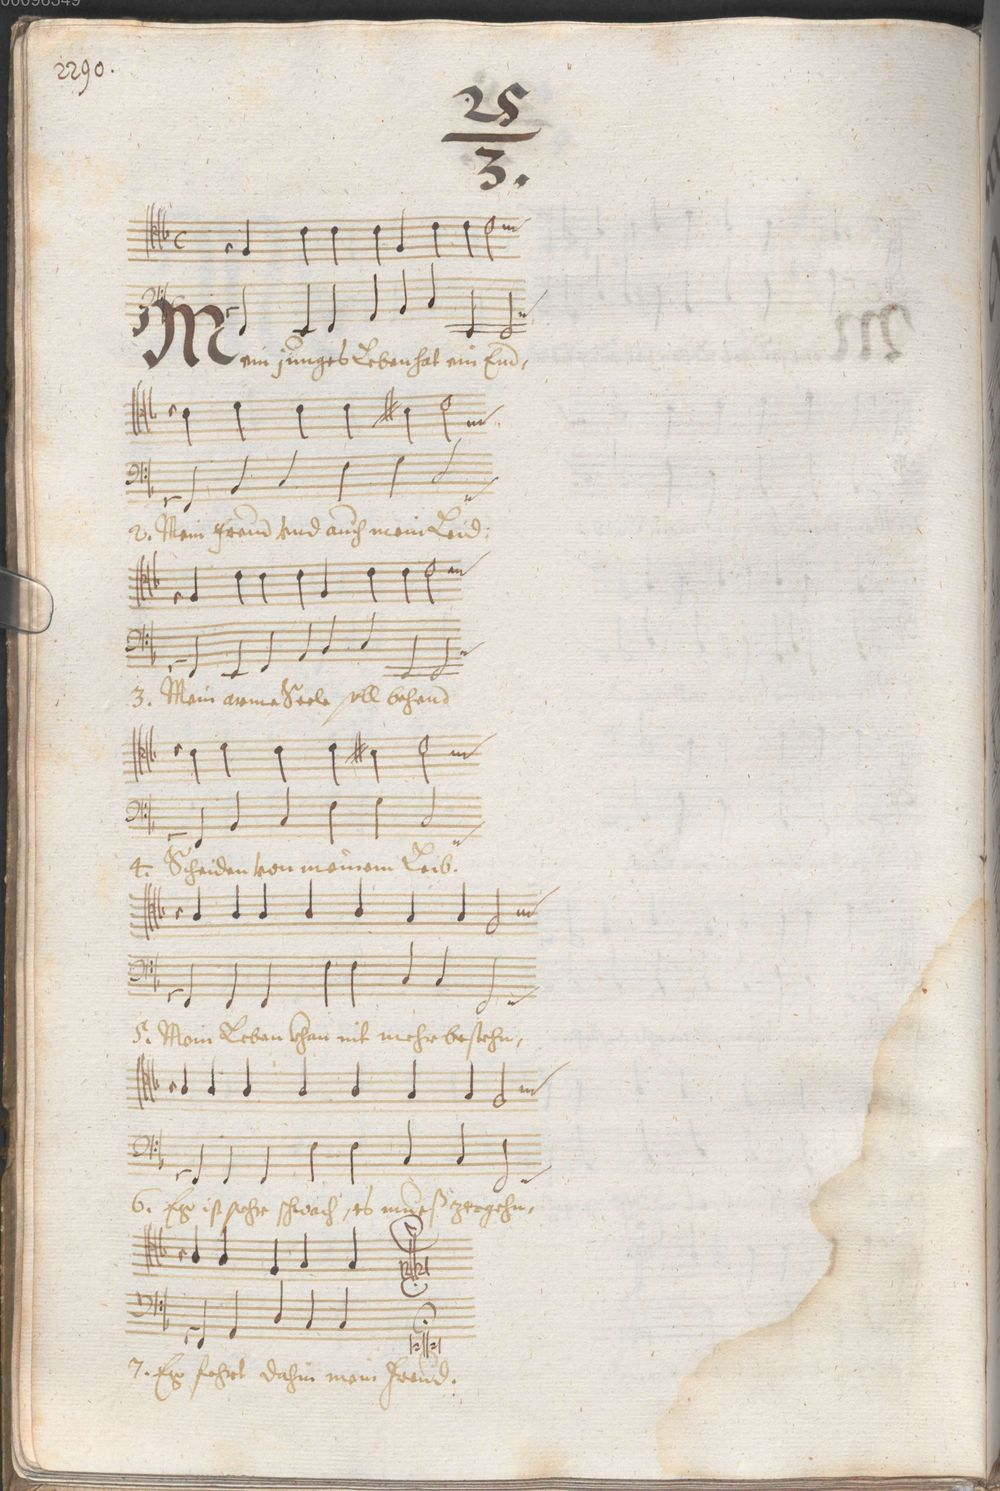 00098549
2290.
25
3.
Mein junges Leben hat ein End,
2. Mein Freud vnd auch mein Leid;
3. Mein arme Seele soll behend
4. Scheiden von meinem Leib.
5. Mein Leben khan nit mehr bestehn,
6. ist sehr schwach, es mueß zergehn,
7. fehrt dahin mein Freud.